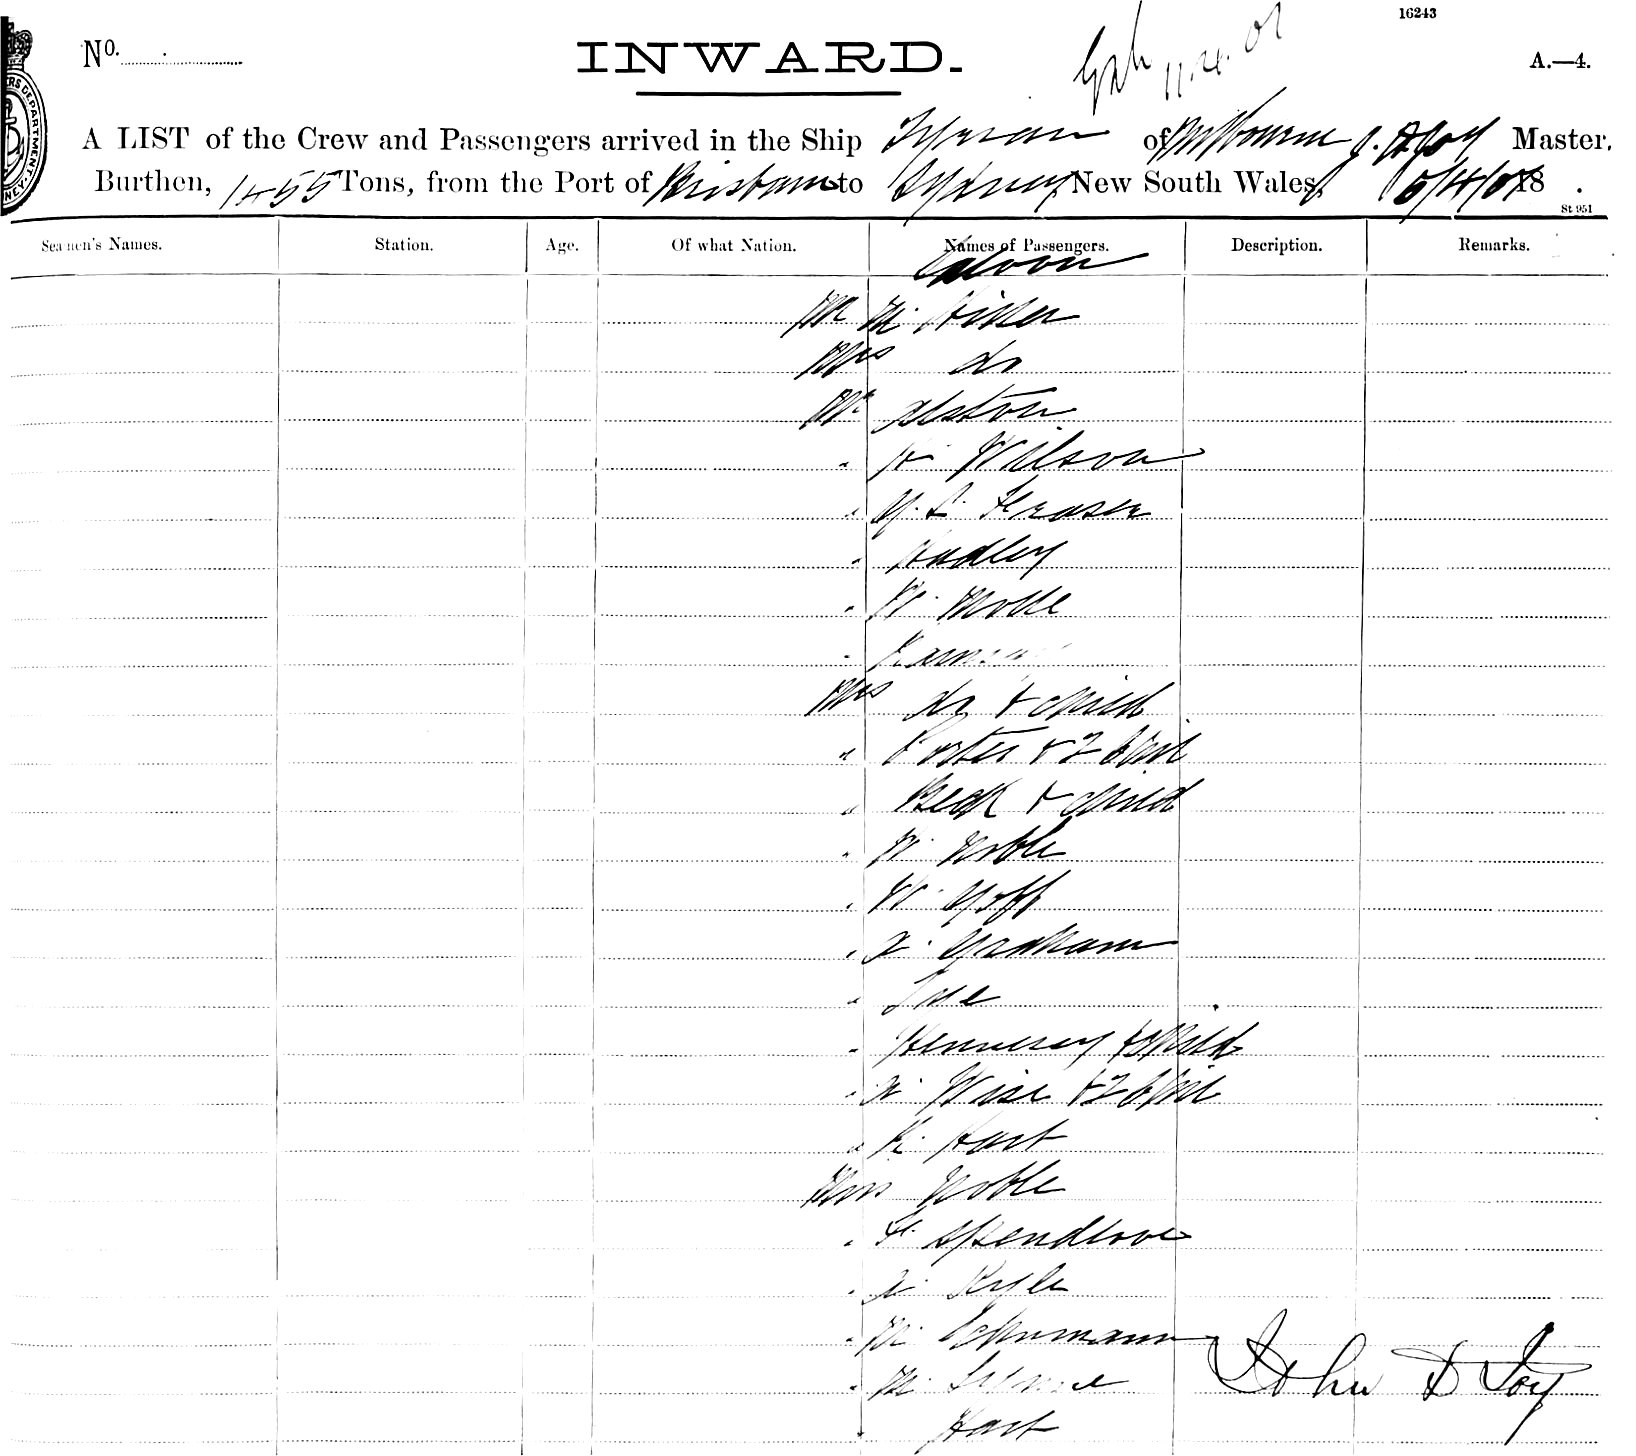 16243
No.
INWARD.
A.—4.
A LIST of the Crew and Passengers arrived in the Ship Tyrian of Melbourne J. D Joy Master,
Burthen, 1455 Tons, from the Port of Brisbane to Sydney New South Wales, 5/4/07 18 .
St 951
Seamen's Names. Station. Age. Of what Nation. Names of Passengers. Description. Remarks.
Saloon
Mr M.
Mrs do
Mr Alston
" H. Wilson
" G. S. Fraser
" Hadley
" W.
"
Mrs do & child
" Porter & 2 Child
" Beak & child
" W. Noble
" W. Goff
" A.
"
" Hennessy & Child
" A. Wise & 2 Child
" K. Hart
Miss Noble
" F. Spendlove
" A. Kyle
" M. Schumann
" M.
" Hart
John D Joy